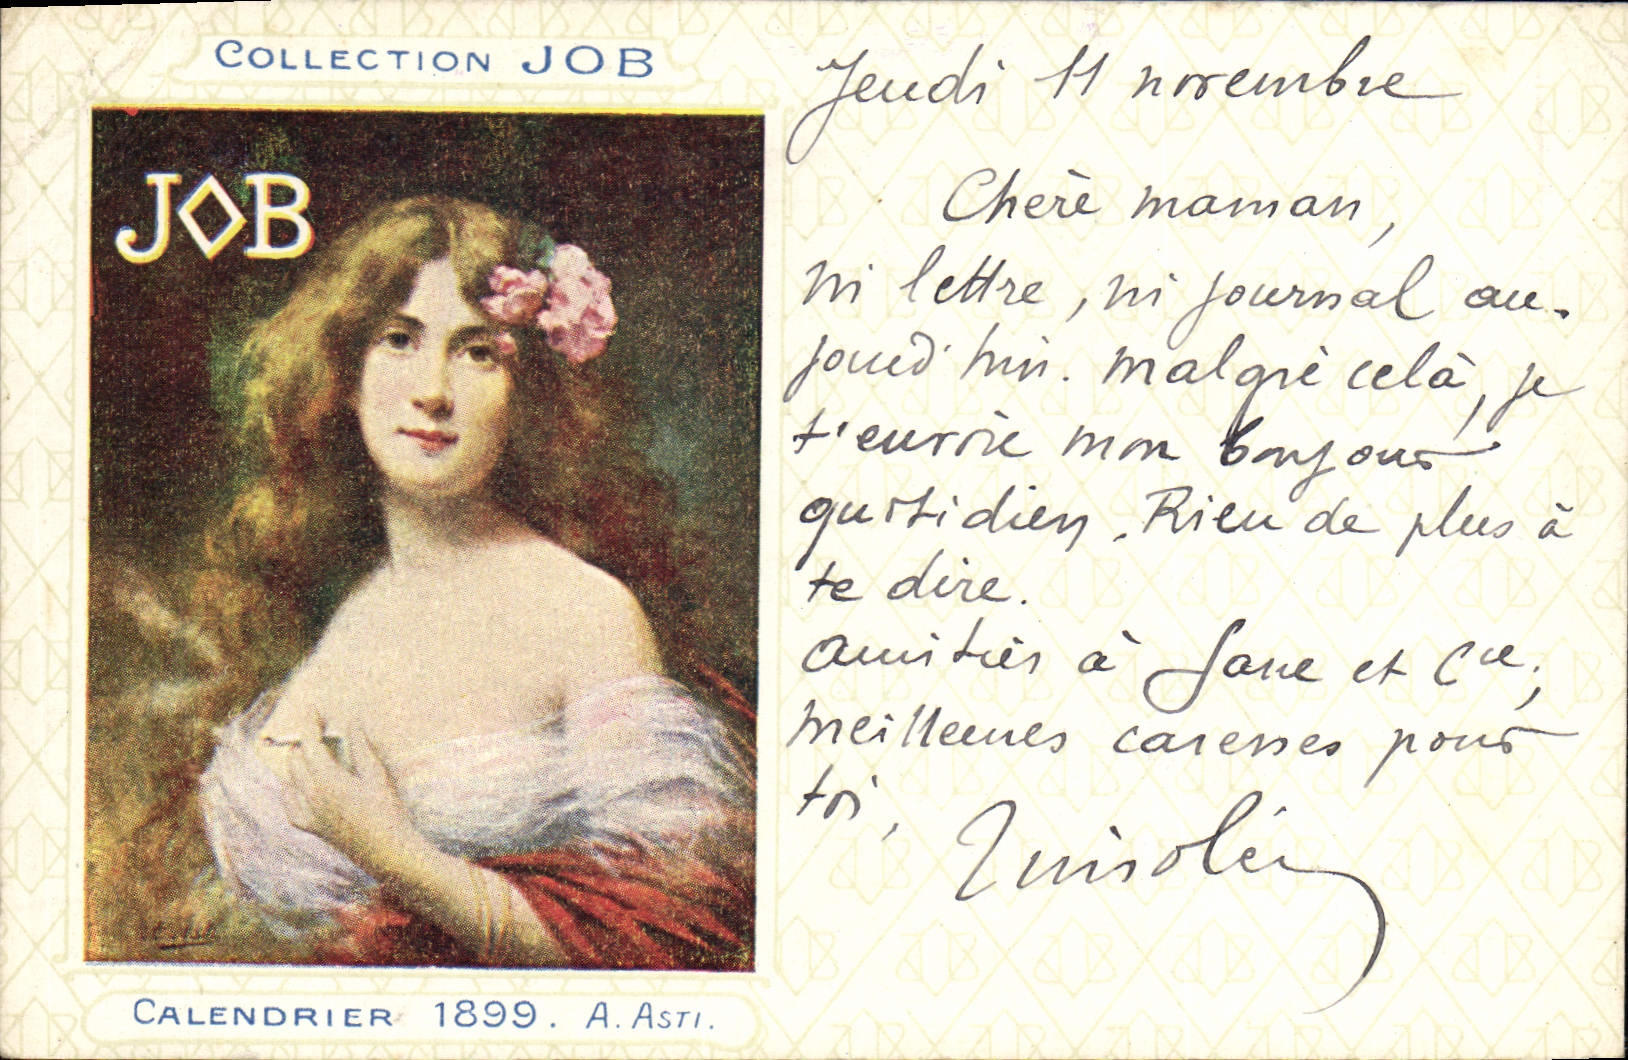 COLLECTION JOB
JOB
CALENDRIER 1899. A. ASTI.
Jeudi 11 novembre
Chère maman,
ni lettre, ni journal au-
jourd'hui. Malgré celà, je
t'envoie mon bonjour
quotidien. Rien de plus à
te dire.
Amitiés à Jane et Cie;
meilleures caresses pour
toi,